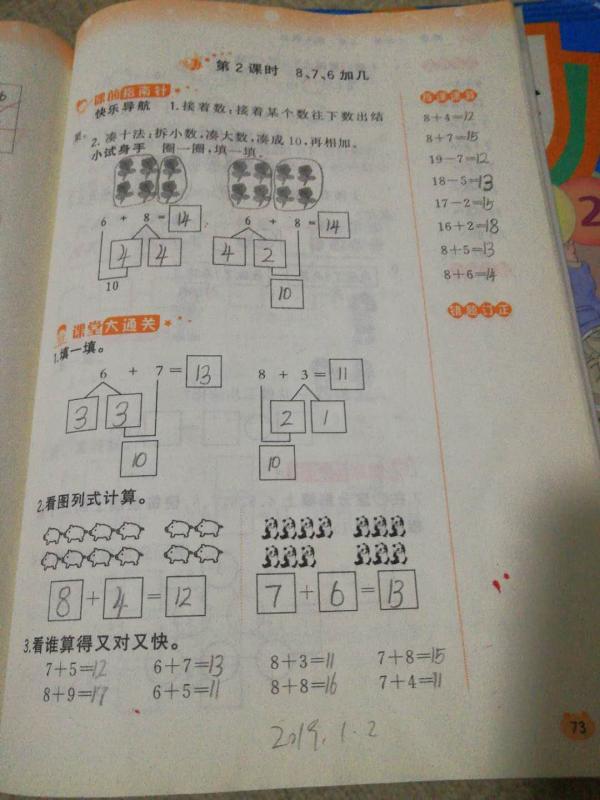 第2课时 8、7、6加几
课前指南针
快乐导航 1.接着数:接着某个数往下数出结
果。
2.凑十法:拆小数,凑大数,凑成10,再相加。
小试身手 圈一圈,填一填。
6 + 8 = 14
4 4
10
6 + 8 = 14
4 2
10
课堂大通关
1.填一填。
6 + 7 = 13
3 3
10
8 + 3 = 11
2 1
10
2.看图列式计算。
8 + 4 = 12
7 + 6 = 13
3.看谁算得又对又快。
7+5=12 6+7=13 8+3=11 7+8=15
8+9=17 6+5=11 8+8=16 7+4=11
2019.1.2
每课速算
8+4=12
8+7=15
19-7=12
18-5=13
17-2=15
16+2=18
8+5=13
8+6=14
错题订正
73
2